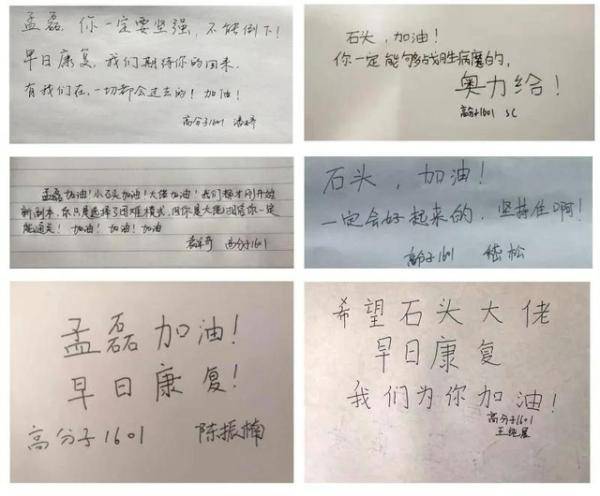 孟磊，你一定要坚强，不能倒下！
早日康复，我们期待你的回来，
有我们在，一切都会过去的！加油！
高分子1601
石头，加油！
你一定能够战胜病魔的，
奥力给！
高分子1601 SC
孟磊加油！小石头加油！大佬加油！我们才刚开始
新副本，你只是选择了困难模式，但你是大佬，相信你一定
能通关！加油！加油！加油
高分子1601
石头，加油！
一定会好起来的，坚持住啊！
高分子1601 嵇松
孟磊加油！
早日康复！
高分子1601 陈振楠
希望石头大佬
早日康复
我们为你加油！
高分子1601